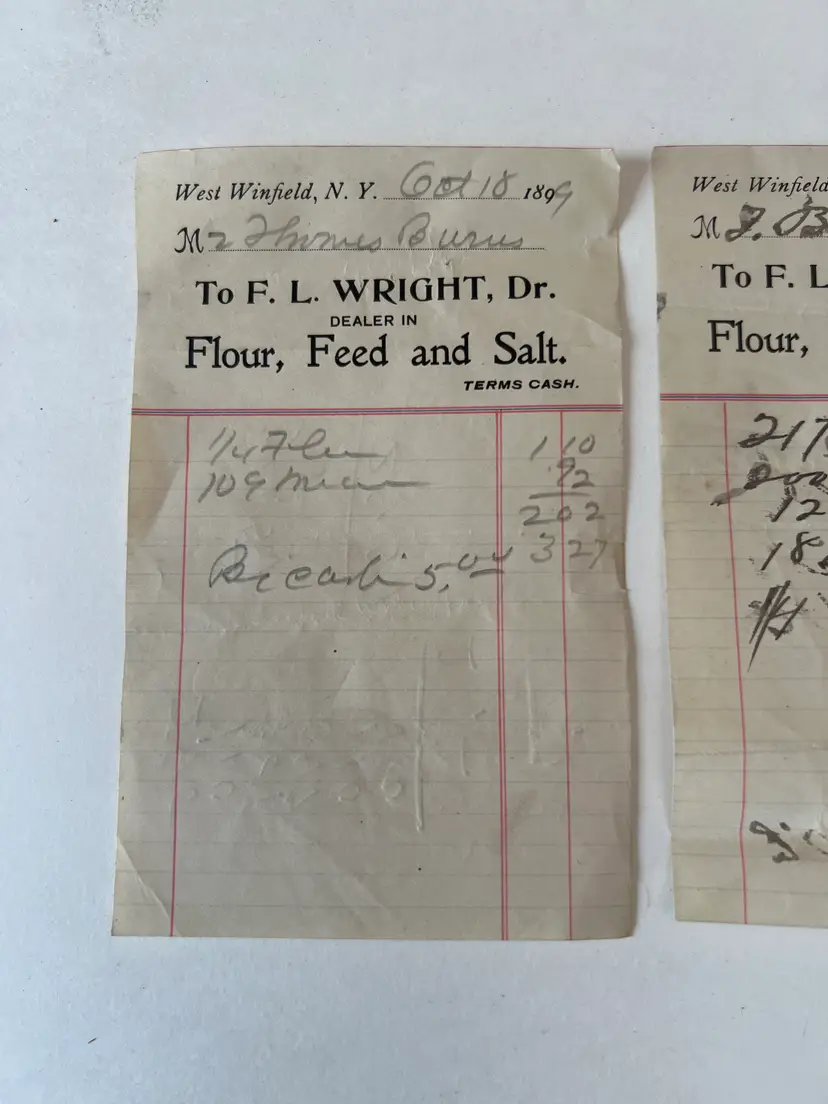 West Winfield, N. Y. Oct 18 1899
Mr Thomas Burns
To F. L. WRIGHT, Dr.
DEALER IN
Flour, Feed and Salt.
TERMS CASH.
1/4 Flour 1 10
109 92
2 02
Rec cash 5.00 3 27
West Winfield
M J. B
To F. L
Flour,
217
200
12
18